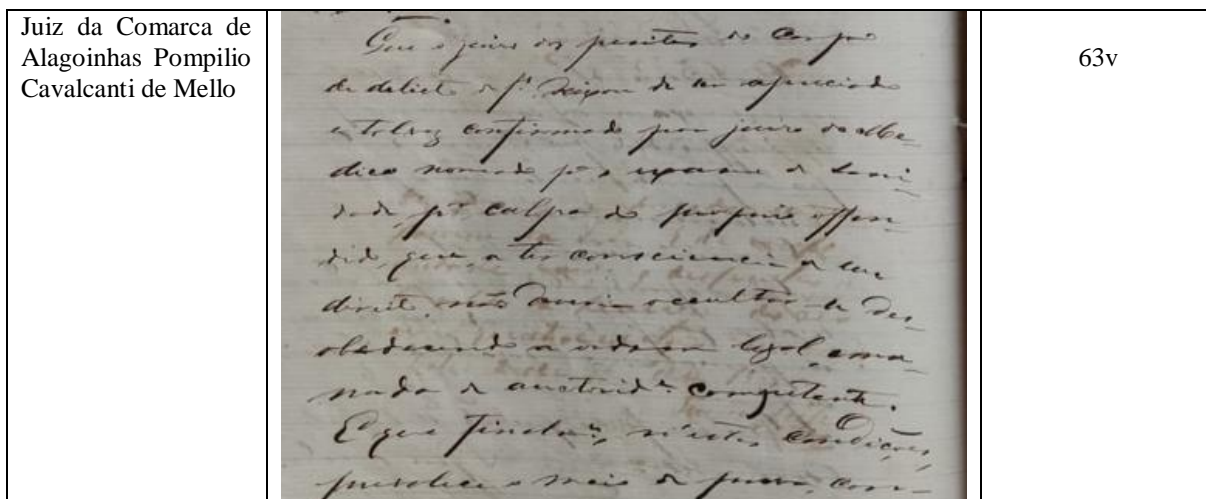 Juiz da Comarca de
Alagoinhas Pompilio
Cavalcanti de Mello
Que o juizo dos peritos do Corpo
de delicto de fˢ deixou de ser
e talvez confirmado por juizo do Me-
dico nomeado pª o exame de Sani-
dade, pʳ culpa do proprio offen-
dido, que, a ter consciencia de seu
direito, não devia occultar-se des-
obedecendo a ordem legal, ema-
nada de auctoridᵉ competente.
E que finalmᵗᵉ, n'estas condicções,
prevalece o meio de prova, con-
63v